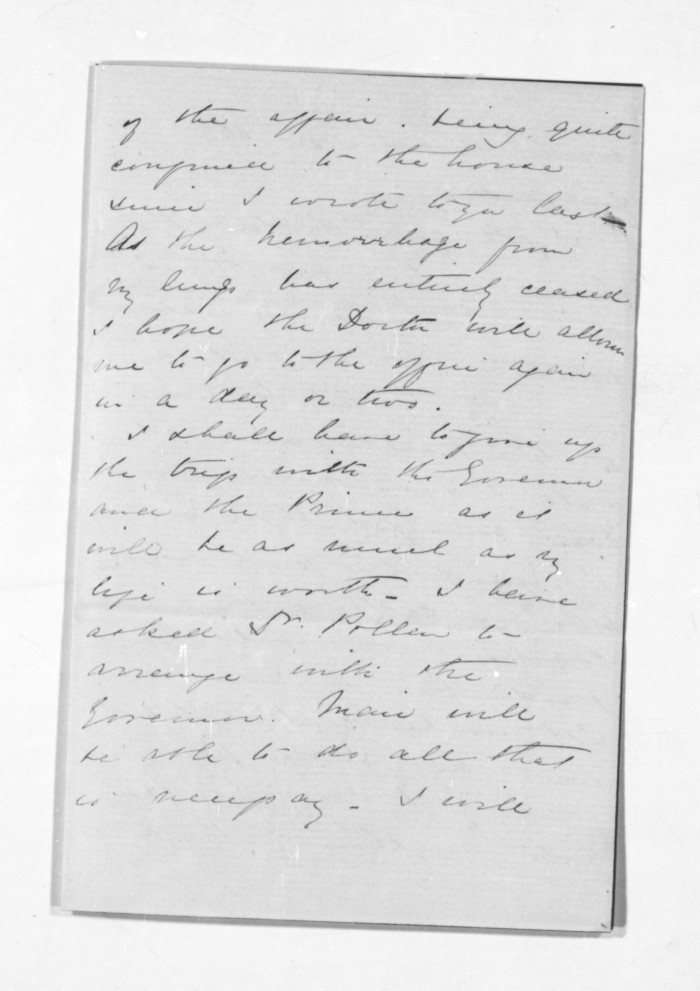 of the affair. being quite
confined to the house
since I wrote to you last.
As the hemorrhage from
my lungs has entirely ceased
I hope the Doctor will allow
me to go to the office again
in a day or two.
I shall have to give up
the trip with the Governor
and the Prince as it
will be as much as my
life is worth - I have
asked Dr. Pollen to
arrange with the
Governor. Mair will
be able to do all that
is necessary - I will